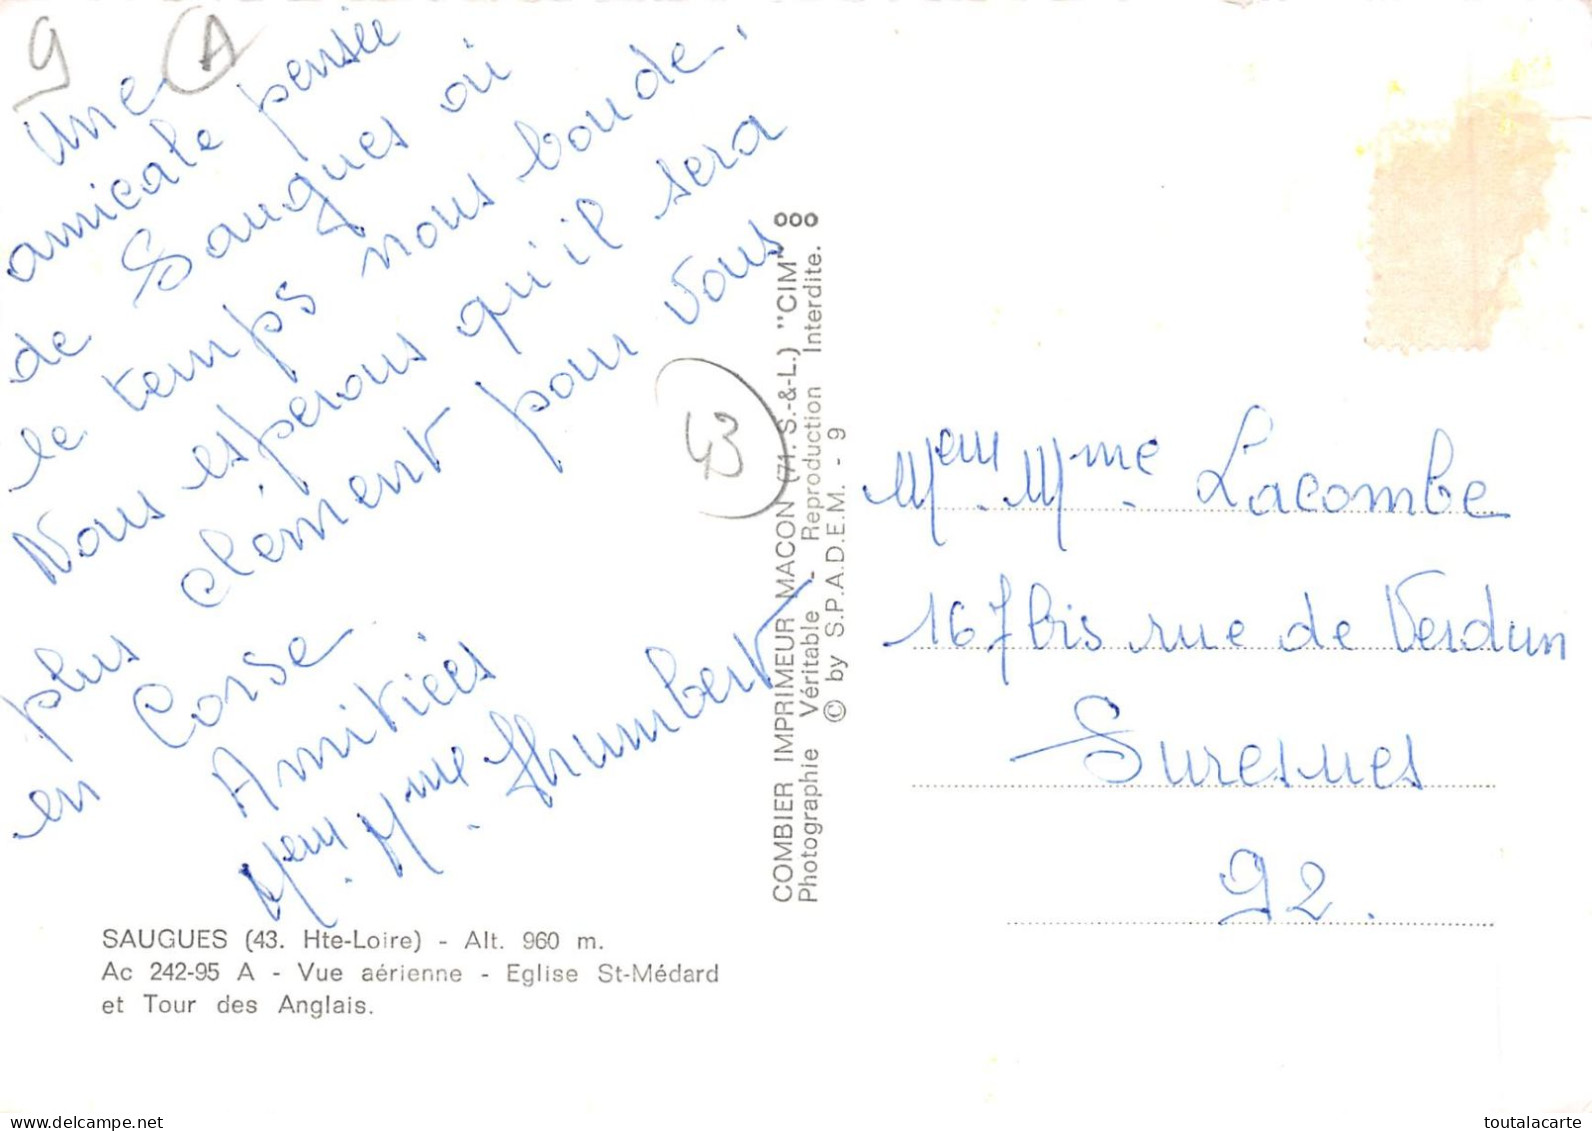 9
A
Une
amicale pensée
de Saugues où
le temps nous boude.
Nous espérons qu'il sera
plus clément pour vous
en Corse
Amitiées
Mem. Mme. Humbert
43
COMBIER IMPRIMEUR MACON (71. S.-&-L.) "CIM"
Photographie Véritable - Reproduction Interdite.
© by S.P.A.D.E.M. - 9
Mem. Mme. Lacombe
167 bis rue de Verdun
Suresnes
92.
SAUGUES (43. Hte-Loire) - Alt. 960 m.
Ac 242-95 A - Vue aérienne - Eglise St-Médard
et Tour des Anglais.
delcampe.net
toutalacarte